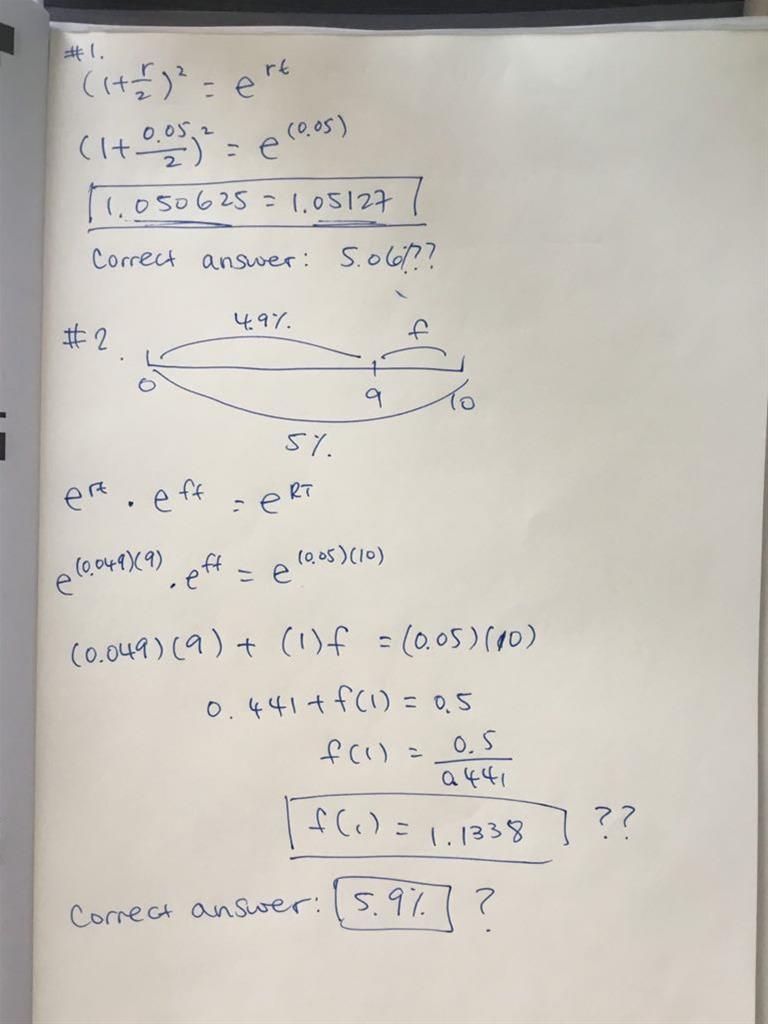 #1.
(1+r/2)² = e^rt
(1+0.05/2)² = e^(0.05)
1.050625 = 1.05127
Correct answer: 5.06%??
#2.
4.9% f
0 9 10
5%.
e^rt · e^ft = e^RT
e^(0.049)(9) · e^ft = e^(0.05)(10)
(0.049)(9) + (1)f = (0.05)(10)
0.441 + f(1) = 0.5
f(1) = 0.5/0.441
f(1) = 1.1338 ??
Correct answer: 5.9% ?